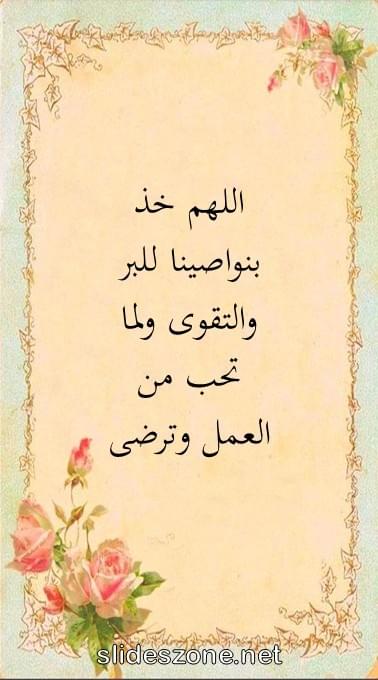 اللهم خذ
بنواصينا للبر
والتقوى ولما
تحب من
العمل وترضى
slideszone.net